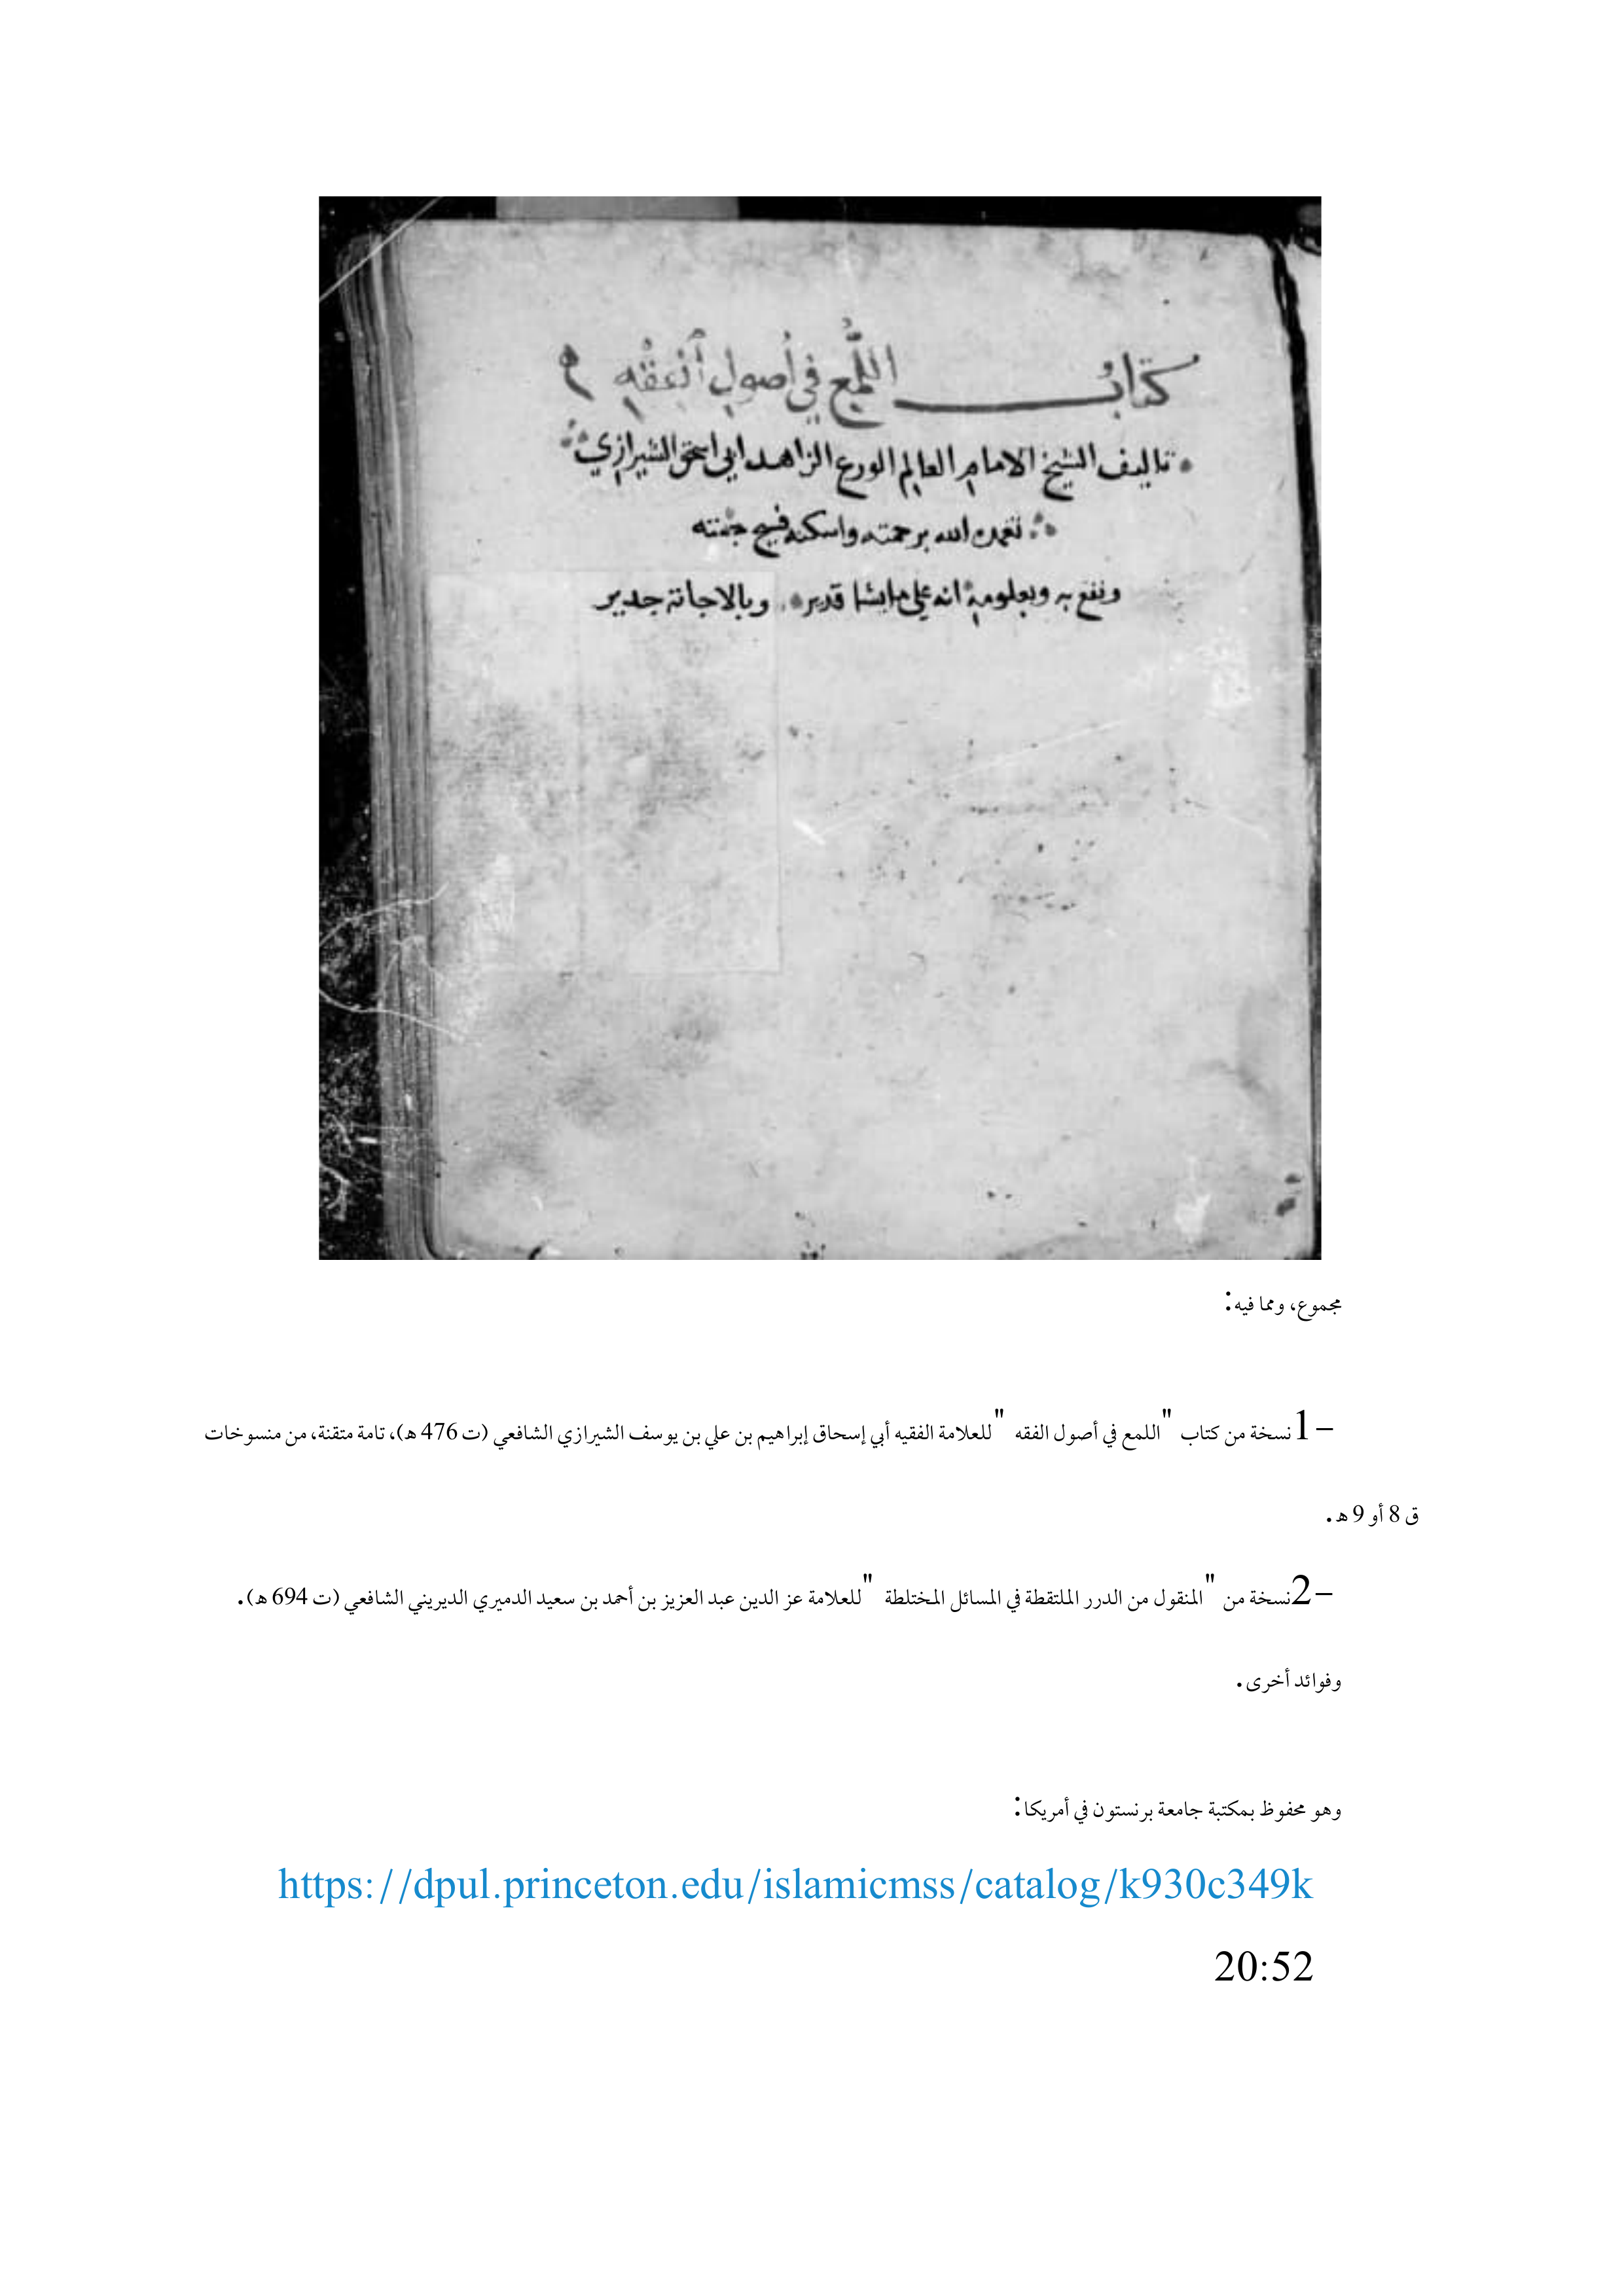 كتاب اللُّمَع في أصول الفقه
تاليف الشيخ الامام العالم الورع الزاهد ابي اسحق الشيرازي
تغمده الله برحمته واسكنه فسيح جنته
ونفع به وبعلومه انه على ما يشا قدير وبالاجابة جدير
مجموع، ومما فيه:
1- نسخة من كتاب "اللمع في أصول الفقه" للعلامة الفقيه أبي إسحاق إبراهيم بن علي بن يوسف الشيرازي الشافعي (ت 476 هـ)، تامة متقنة، من منسوخات
ق 8 أو 9 هـ.
2- نسخة من "المنقول من الدرر الملتقطة في المسائل المختلطة" للعلامة عز الدين عبد العزيز بن أحمد بن سعيد الدميري الديريني الشافعي (ت 694 هـ).
وفوائد أخرى.
وهو محفوظ بمكتبة جامعة برنستون في أمريكا:
https://dpul.princeton.edu/islamicmss/catalog/k930c349k
20:52